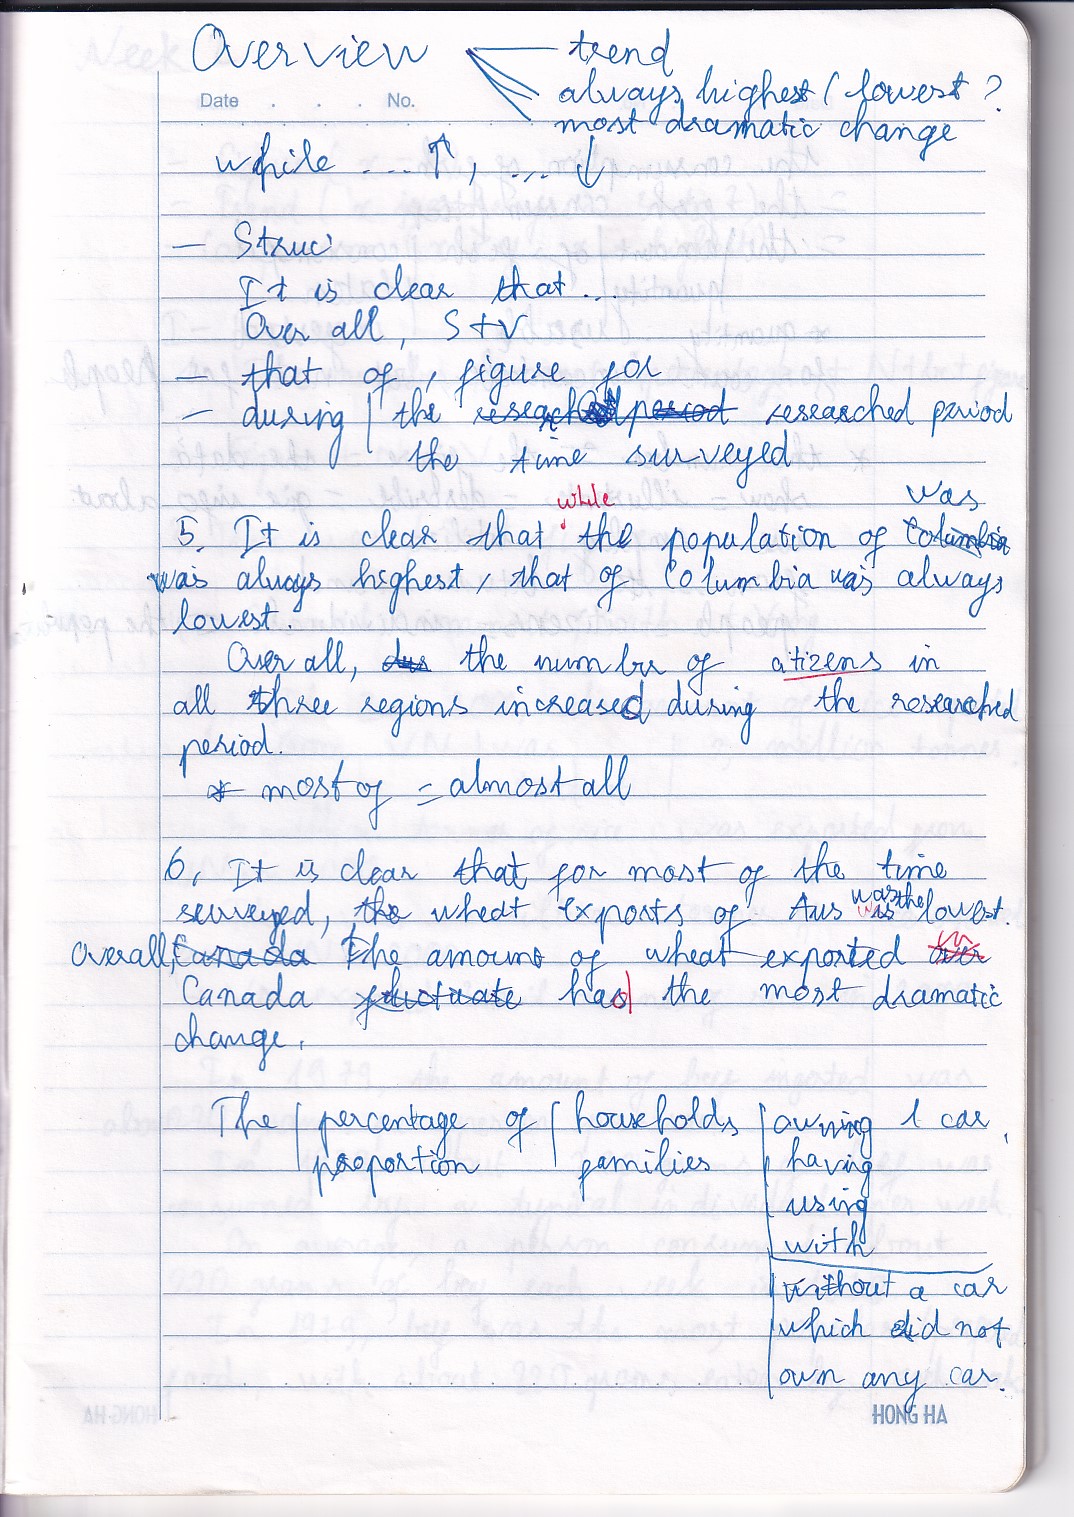 Overview
trend
always highest / lowest ?
most dramatic change
Date . . . No.
while ....↑, ... ↓
- Struc
It is clear that ...
Over all, S + V
- that of, figure for
- during | the researched period researched period
the time surveyed
while was
5. It is clear that the population of Columbia
was always highest, that of Columbia was always
lowest.
Over all, the number of citizens in
all three regions increased during the researched
period.
* most of = almost all
6, It is clear that for most of the time
surveyed, the wheat exports of Aus was the lowest.
Overall, Canada the amount of wheat exported in
Canada fluctuate had the most dramatic
change.
The | percentage of | households | owning 1 car,
proportion families having
using
with
without a car
which did not
own any car.
HONG HA